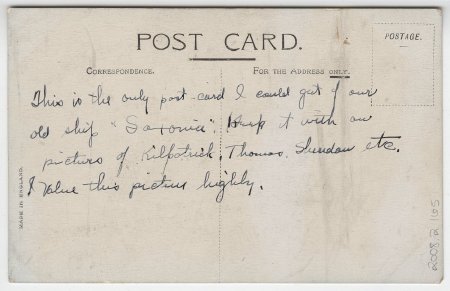 POST CARD.
CORRESPONDENCE.
FOR THE ADDRESS ONLY.
POSTAGE.
This is the only post card I could get of our
old ship "Saxonia". Keep it with our
picture of Kilpatrick, Thomas, etc.
I value this picture highly.
MADE IN ENGLAND.
2008.2.165